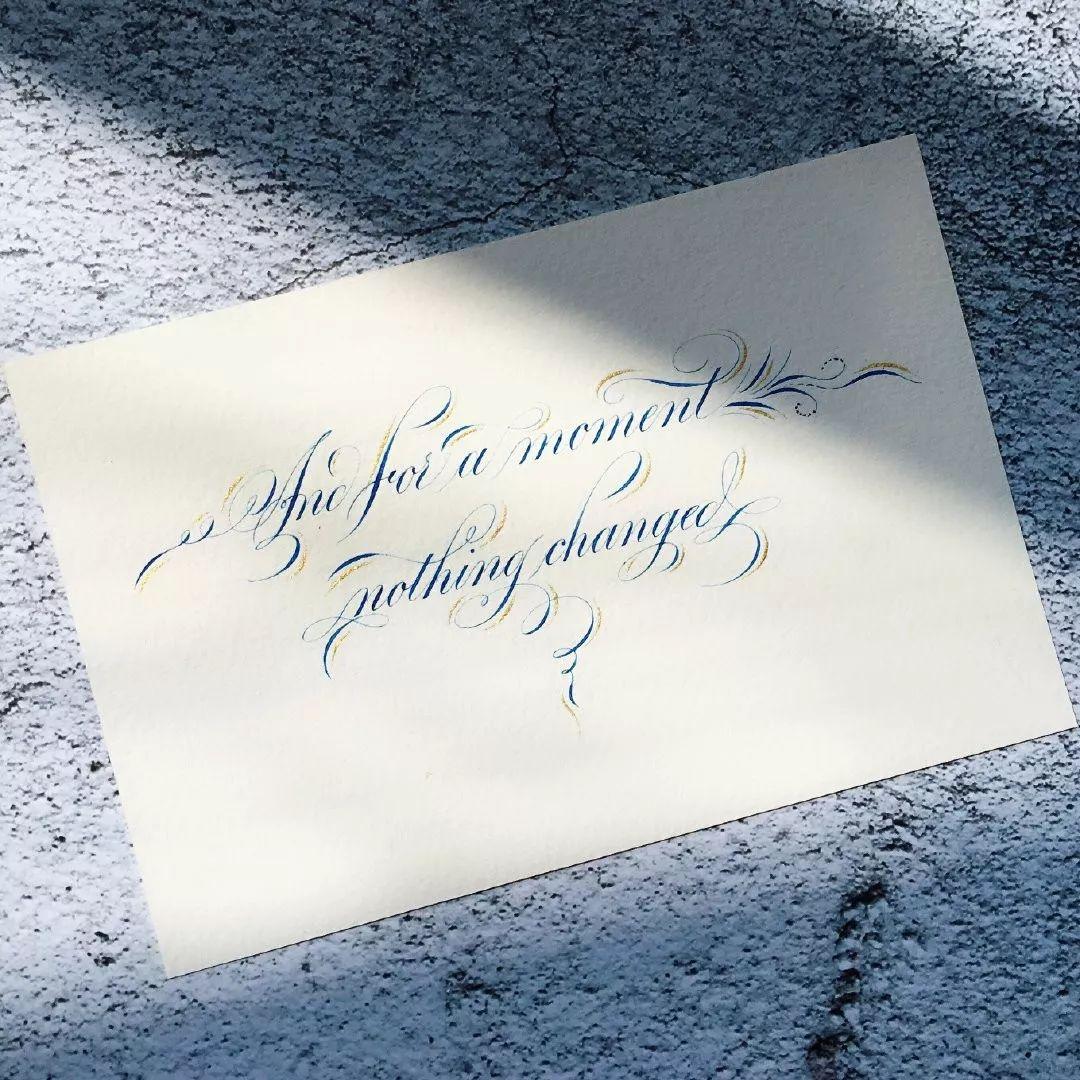 And for a moment
nothing changed